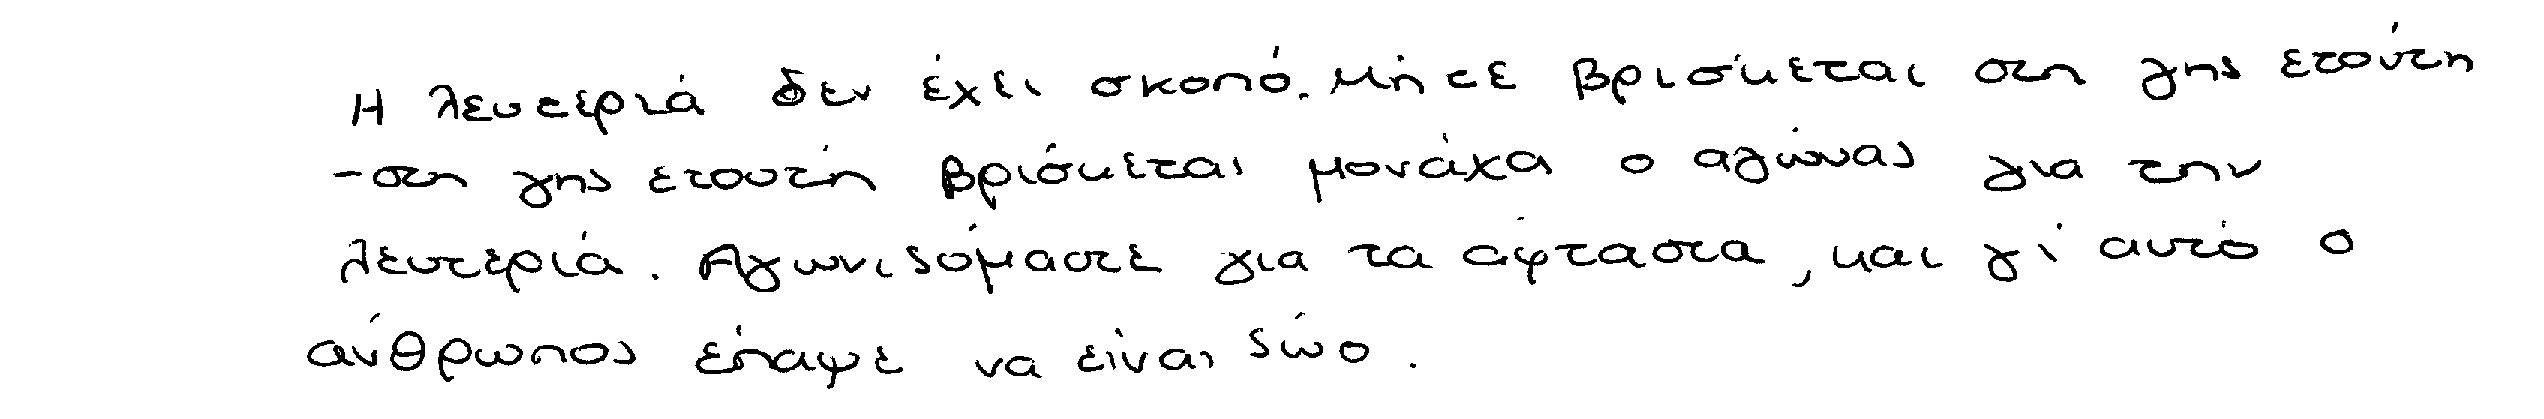 Η λευτεριά δεν έχει σκοπό. Μήτε βρίσκεται στη γης ετούτη
-στη γης ετουτή βρίσκεται μονάχα ο αγώνας για την
λευτεριά. Αγωνιζόμαστε για τα άφταστα, και γι' αυτό ο
άνθρωπος έπαψε να είναι ζώο.